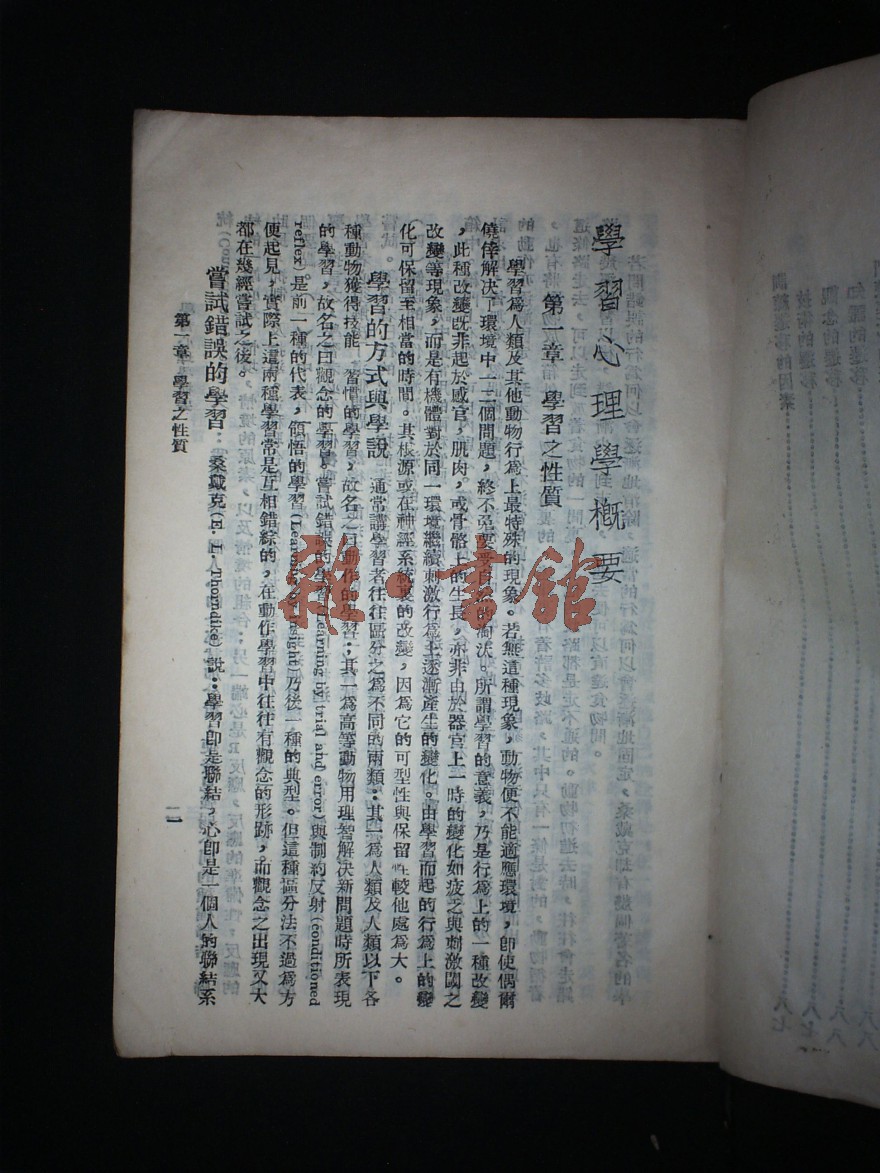 學習心理學概要
第一章　學習之性質
學習爲人類及其他動物行爲上最特殊的現象。若無這種現象，動物便不能適應環境，卽使偶爾
僥倖解決了環境中一二個問題，終不免要受自然的淘汰。所謂學習的意義，乃是行爲上的一種改變
，此種改變旣非起於感官，肌肉，或骨骼上的生長，亦非由於器官上一時的變化如疲乏與刺激閾之
改變等現象，而是有機體對於同一環境繼續刺激行爲上逐漸產生的變化。由學習而起的行爲上的變
化可保留至相當的時間。其根源或在神經系統裏的改變，因爲它的可型性與保留性較他處爲大。
學習的方式與學說　通常講學習者往往區分之爲不同的兩類：其一爲人類及人類以下各
種動物獲得技能，習慣的學習，故名之曰動作的學習；其一爲高等動物用理智解決新問題時所表現
的學習，故名之曰觀念的學習。嘗試錯誤的學習(Learning by trial and error)與制約反射(conditioned
reflex)是前一種的代表，領悟的學習(Learning by insight)乃後一種的典型。但這種區分法不過爲方
便起見，實際上這兩種學習常是互相錯綜的，在動作學習中往往有觀念的形跡，而觀念之出現又大
都在幾經嘗試之後。
嘗試錯誤的學習　桑戴克(E. L. Thorndike)說：學習卽是聯結，心卽是一個人的聯結系
第一章　學習之性質
雜·書館